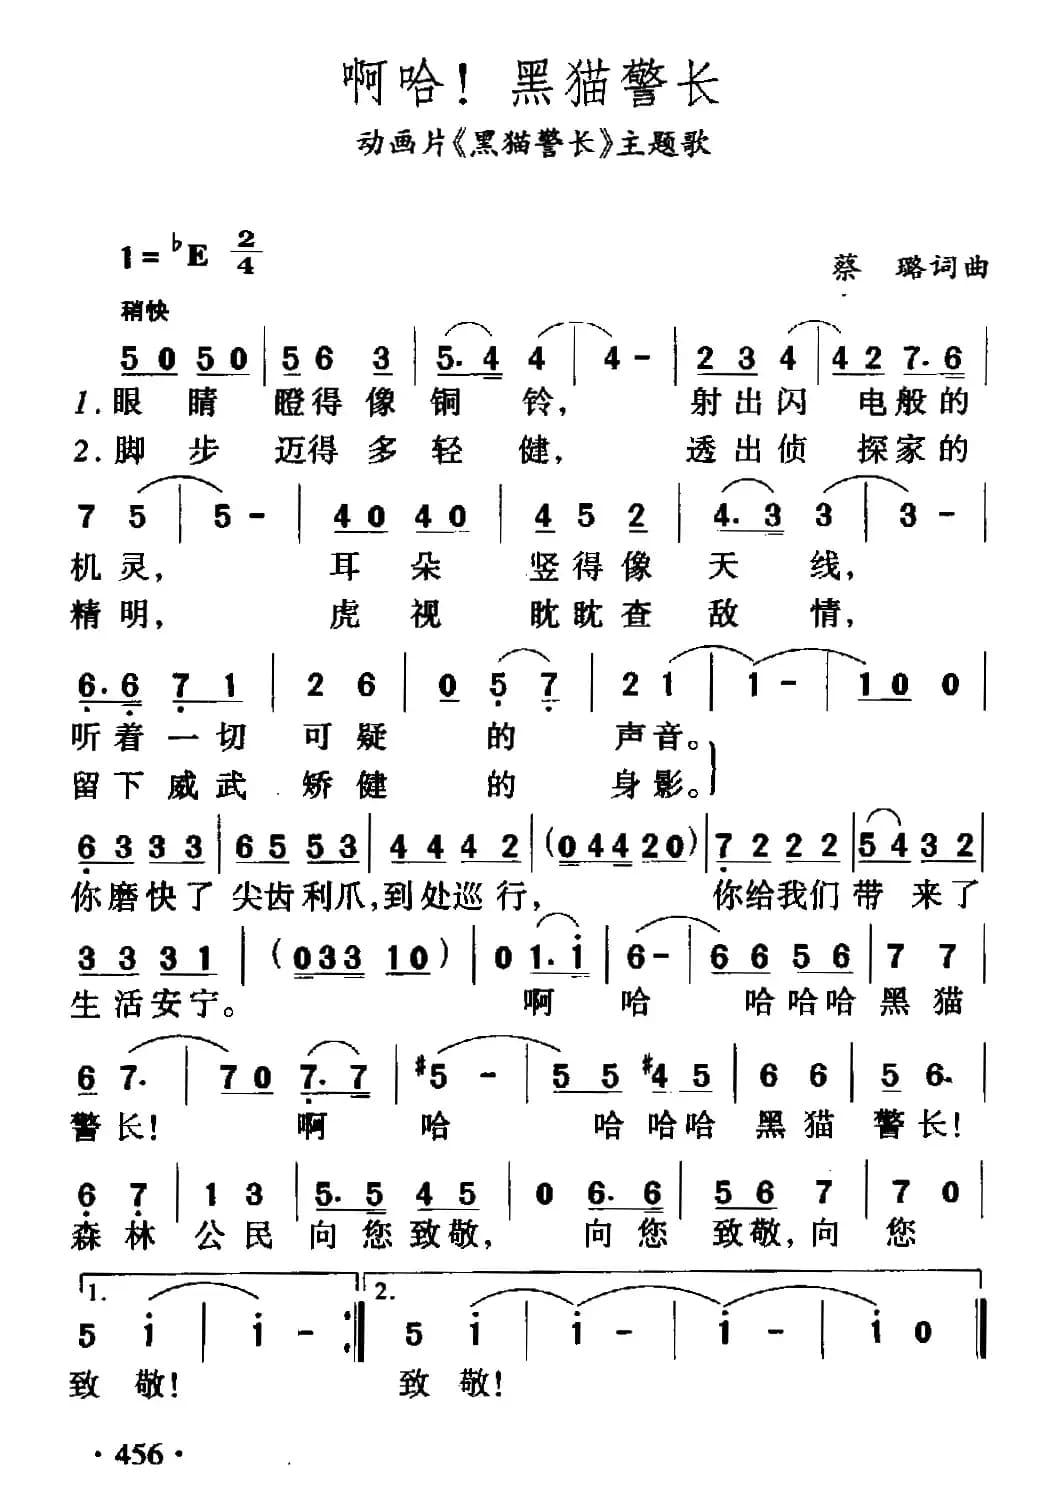 啊哈！黑猫警长
动画片《黑猫警长》主题歌
1=♭E 2/4
蔡 璐词曲
稍快
5 0 5 0 | 5 6 3 | 5. 4 4 | 4 - | 2 3 4 | 4 2 7. 6 |
1.眼 睛 瞪得像铜 铃， 射出闪 电般的
2.脚 步 迈得多轻 健， 透出侦 探家的
7 5 | 5 - | 4 0 4 0 | 4 5 2 | 4. 3 3 | 3 - |
机灵， 耳 朵 竖得像 天 线，
精明， 虎 视 眈眈查 敌 情，
6. 6 7 1 | 2 6 | 0 5 7 | 2 1 | 1 - | 1 0 0 |
听着一切 可疑 的 声音。
留下威武 矫健 的 身影。
6 3 3 3 | 6 5 5 3 | 4 4 4 2 | (0 4 4 2 0) | 7 2 2 2 | 5 4 3 2 |
你磨快了 尖齿利爪，到处巡行， 你给我们 带 来了
3 3 3 1 | (0 3 3 1 0) | 0 1. i | 6 - | 6 6 5 6 | 7 7 |
生活安宁。 啊 哈 哈哈哈 黑猫
6 7. | 7 0 7. 7 | #5 - | 5 5 #4 5 | 6 6 | 5 6. |
警长！ 啊 哈 哈 哈哈 黑猫 警长！
6 7 | 1 3 | 5. 5 4 5 | 0 6. 6 | 5 6 7 | 7 0 |
森林 公民 向您致敬， 向您 致敬，向 您
1. 2.
5 i | i - :‖ 5 i | i - | i - | i 0 ‖
致 敬！ 致 敬！
· 456 ·